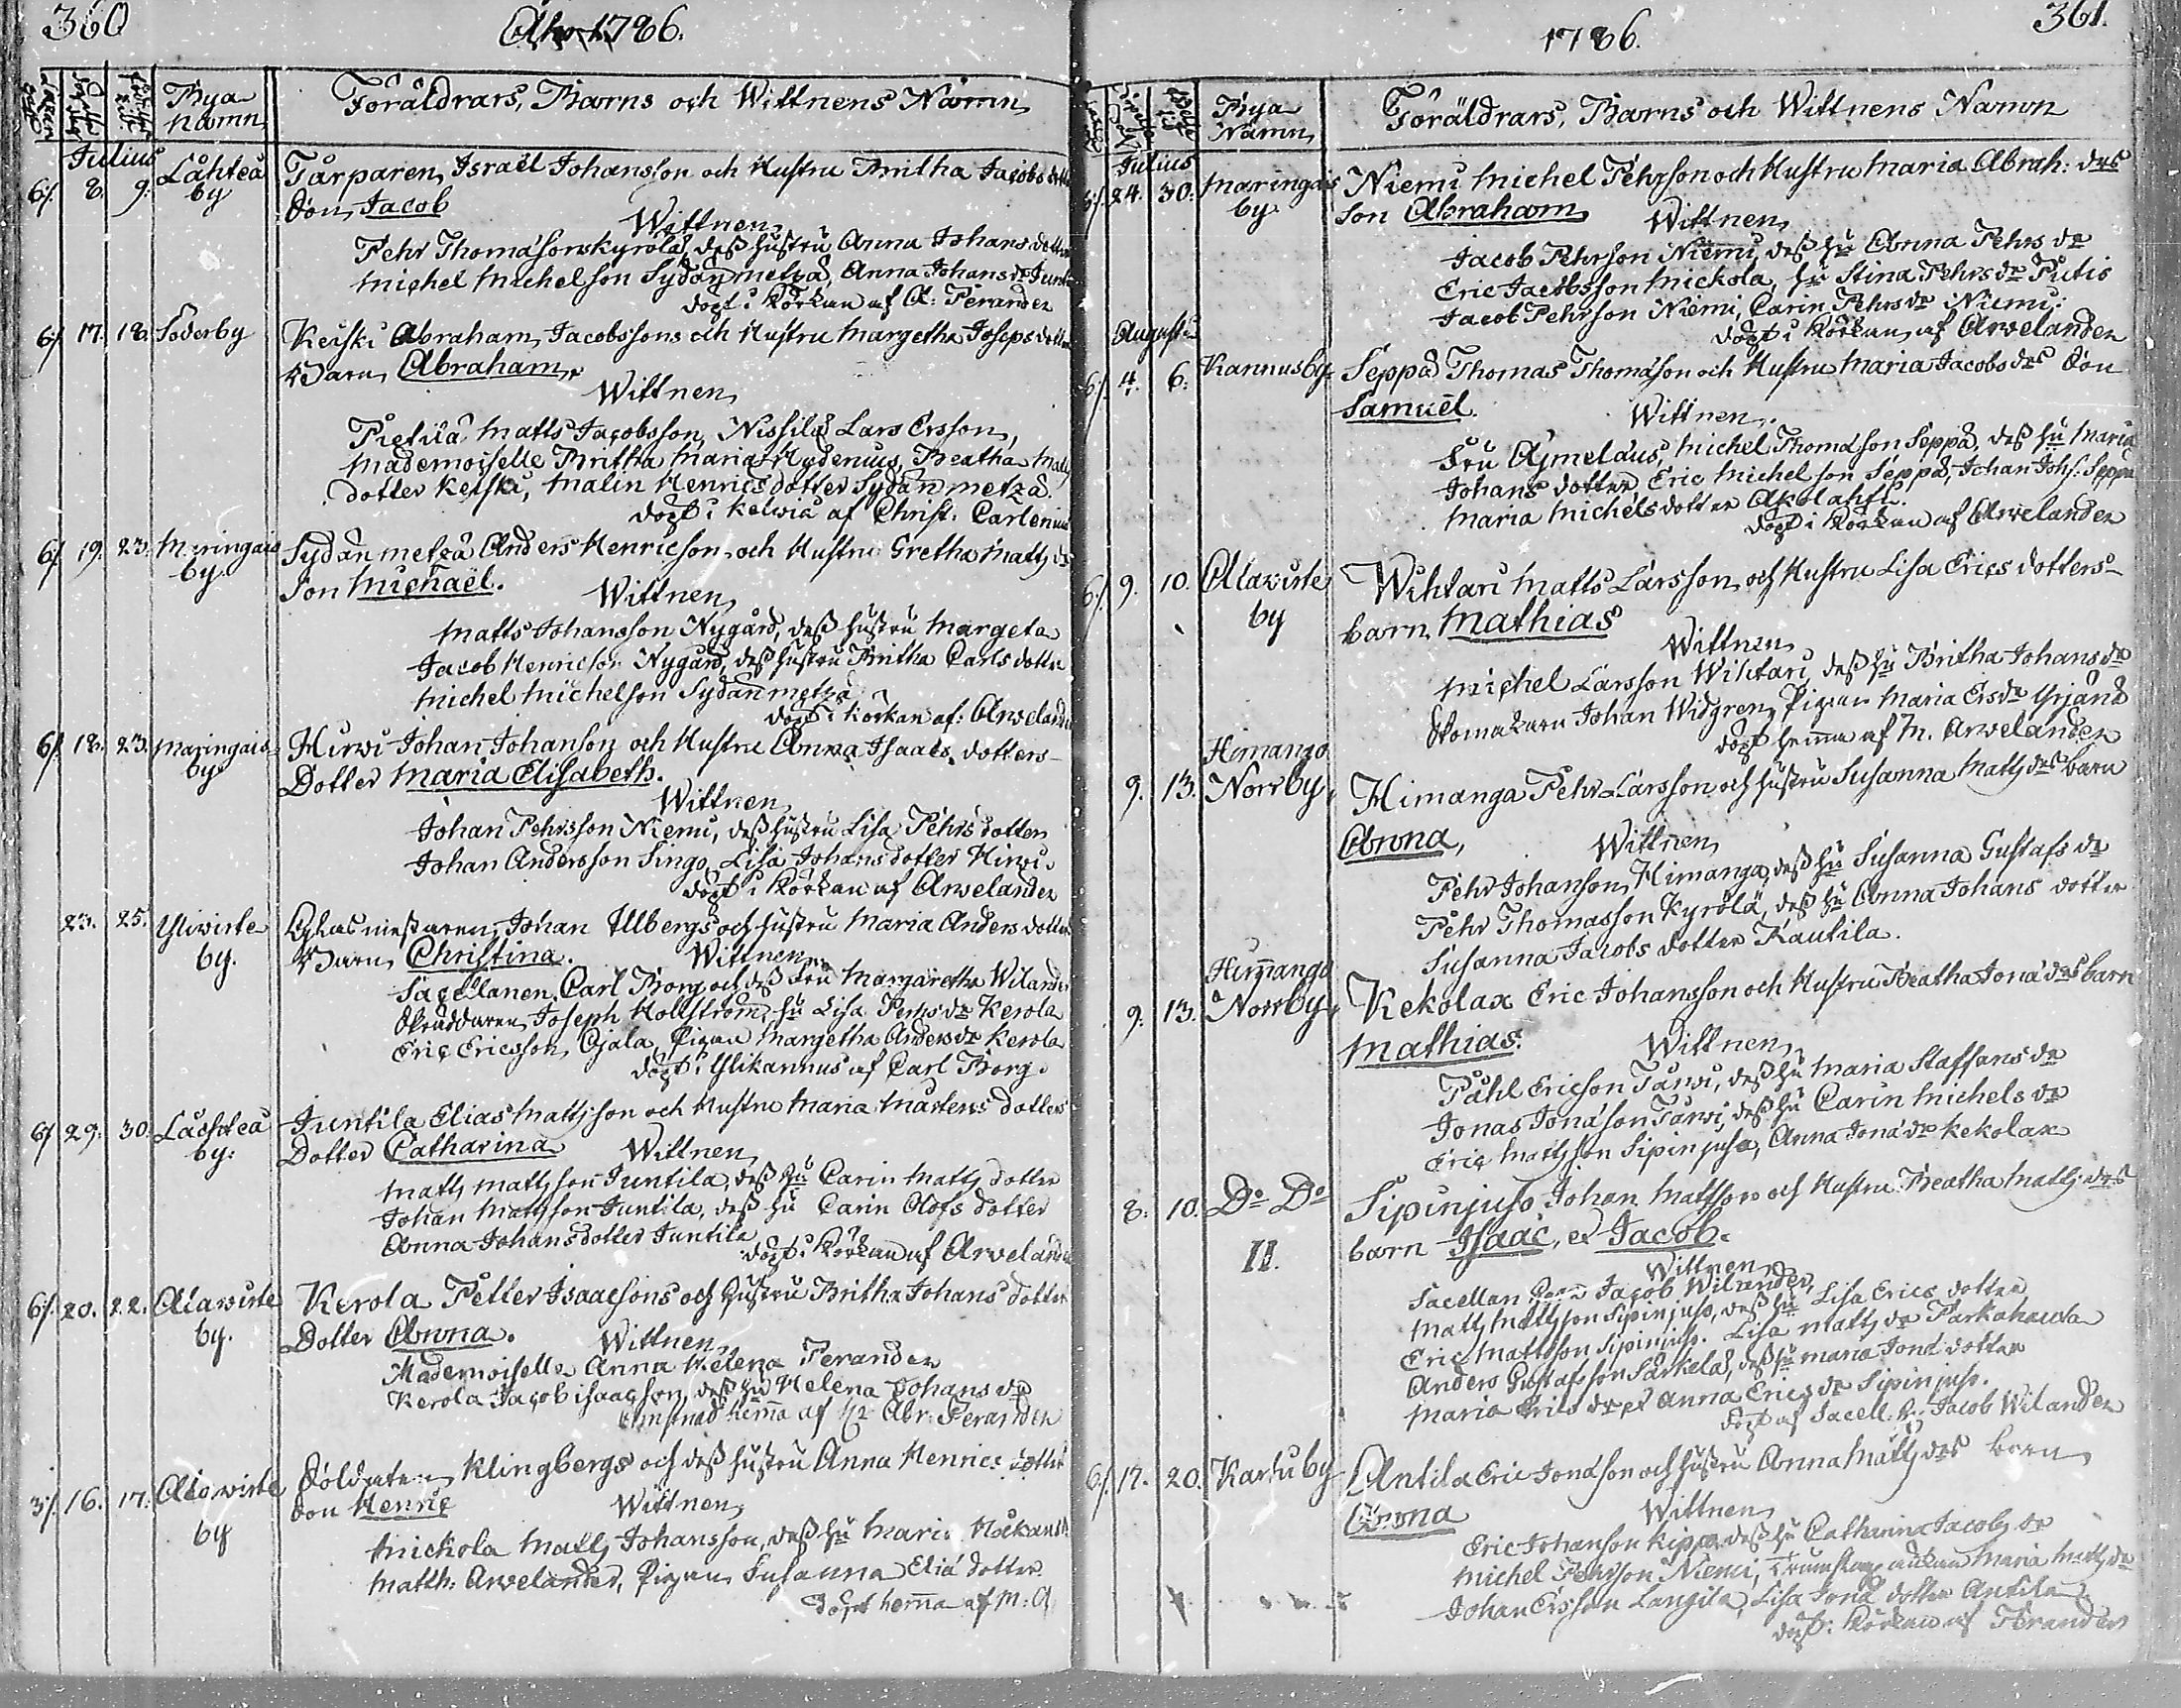 360
Åhr 1786.
Bya namn
Föräldrars, Barns och Wittnens Namn
Julius
6/. 8. 9. Låhteå by
Tårparen, Israël Johansson och Hustru Britha Jacobs dott
Son Jacob
Wittnen
Pehr Thomasson Kyrölä, deß hustru Anna Johans dotter
Michel Michelson Sydänmetzä, Anna Johans dr Junt
döpt i Körkan af A: Perander
6/. 17. 18. Söderby
Keiski Abraham Jacobssons och Hustru Margetha Joseps dotter
Barn Abraham
Wittnen
Pietilä Matts Jacobsson, Nissilä Lars Ersson,
Mademoiselle Britha Maria Rydenius, Beatha Matts
dotter Keiski, Malin Henrics dotter Sydänmetzä.
döpt i Kelwiå af Christ. Carlenius
6/. 19. 23. Maringais by
Sydänmetzä Anders Henricson och Hustru Gretha Matts dr
Son Michaël.
Wittnen
Matts Johansson Nygård, deß hustru Margeta
Jacob Henricson Nygård, deß hustru Britha Carls dotter
Michel Michelson Sydänmetzä
döpt i körkan af: Arvelander
6/. 18. 23. Maringais by
Hirwi Johan Johanson och Hustru Anna Isaacs dotters
Dotter Maria Elisabeth.
Wittnen
Johan Pehrsson Niemi, deß hustru Lisa Pehrs dotter
Johan Andersson Singo, Lisa Johans dotter Hirwi.
döpt i Körkan af Arvelander
23. 25. Yliwirte by.
Johan Ullbergs och hustru Maria Anders dotter
Barn Christina.
Wittnen
Sacellanen Carl Borg och deß Fru Margaretha Wilander
Skräddaren Joseph Hollström, hu Lisa Pehrs dr Kerola
Eric Ericsson Ojala, Pigan Margetha Anders dr Kerola
döpt i Ylikannus af Carl Borg.
6/. 29. 30. Låchteå by:
Juntila Elias Mattsson och Hustru Maria Mårtens dotters
Dotter Catharina
Wittnen
Matts Mattsson Juntila, deß hu Carin Matts dotter
Johan Mattsson Juntila, deß hu Carin Olofs dotter
Anna Johans dotter Juntila
döpt i Körkan af Arvelander
6/. 20. 22. Alawirte by.
Kerola Petter Isaacsons och hustru Britha Johans dotter
Dotter Anna.
Wittnen
Mademoiselle Anna Helena Perander
Kerola Jacob Isaacson, deß hu Helena Johans dr
hema af Hr Abr: Perander
3/. 16. 17. Alawirte by
Soldaten Klingbergs och deß hustru Anna Henrics dotter
Son Henric
Wittnen
Mickola Matts Johansson, deß hu Maria Håkans dr
Matth: Arvelander, Pigan Susanna Eliä dotter
döpt hema af M: A
361.
1786.
Bya Namn
Föräldrars, Barns och Wittnens Namn
Julius
6/. 24. 30. Maringais by
Niemi Michel Pehrson och Hustru Maria Abrah: drs
Son Abraham
Wittnen
Jacob Pehrson Niemi, deß hu Anna Pehrs dr
Eric Jacobsson Mickola, hu Stina Pehrs dr Putis
Jacob Pehrson Niemi, Carin Pehrs dr Niemi.
döpt i Körkan af Arvelander
Augusti
6/. 4. 6. Kannusby
Seppä Thomas Thomason och Hustru Maria Jacobs drs Son
Samuel.
Wittnen.
Fru Ajmelæus, Michel Thomason Seppä, deß hu Maria
Johans dotter Eric Michelson Seppä, Johan Johs: Seppä
Maria Michels dotter
döpt i Körkan af Arvelander
6/. 9. 10. Alawirte by
Wiktari Matts Larsson och Hustru Lisa Erics dotters
barn Mathias
Wittnen
Michel Larsson Wiktari, deß hu Britha Johans dr
Skomakaren Johan Widgren, Pigan Maria Ers dr Yrjänä
döpt hema af M. Arvelander
9. 13. Himango Norrby,
Himanga Pehr Larsson och hustru Susanna Matts drs barn
Anna,
Wittnen
Pehr Johanson Himanga, deß hu Susanna Gustafs dr
Pehr Thomasson Kyrölä, deß hu Anna Johans dotter
Susanna Jacobs dotter Kautila.
9. 13. Himango Norrby,
Kekolax Eric Johansson och Hustru Beatha Jona drs barn
Mathias.
Wittnen
Påhl Ericson Tarwi, deß hu Maria Staffans dr
Jonas Jonason Tarwi, deß hu Carin Michels dr
Eric Mattsson Sipinjuso, Anna Jona dr Kekolax
8. 10. Do Do
II.
Sipinjuso Johan Mattson och Hustru Beatha Matts drs
barn Isaac, et Jacob.
Wittnen
Sacellan Jacob Wilander,
Matts Mattsson Sipinjuso, deß hu Lisa Erics dotter
Eric Mattsson Sipinjuso. Lisa Matts dr Parkahauta
Anders Gustafsson Särkelä, deß hu Maria Jona dotter
Maria Erics dr et Anna Erics dr Sipinjuso.
döpt af Sacell. Jacob Wilander
6/. 17. 20. Karhu by
Antila Eric Jonason och hustru Anna Matts drs barn
Anna
Wittnen
Eric Johanson Kippo, deß hu Catharina Jacobs dr
Michel Pehrson Niemi, Maria Matts dr
Johan Ersson Langila, Lisa Jona dotter Antila
döpt i Körkan af Perander